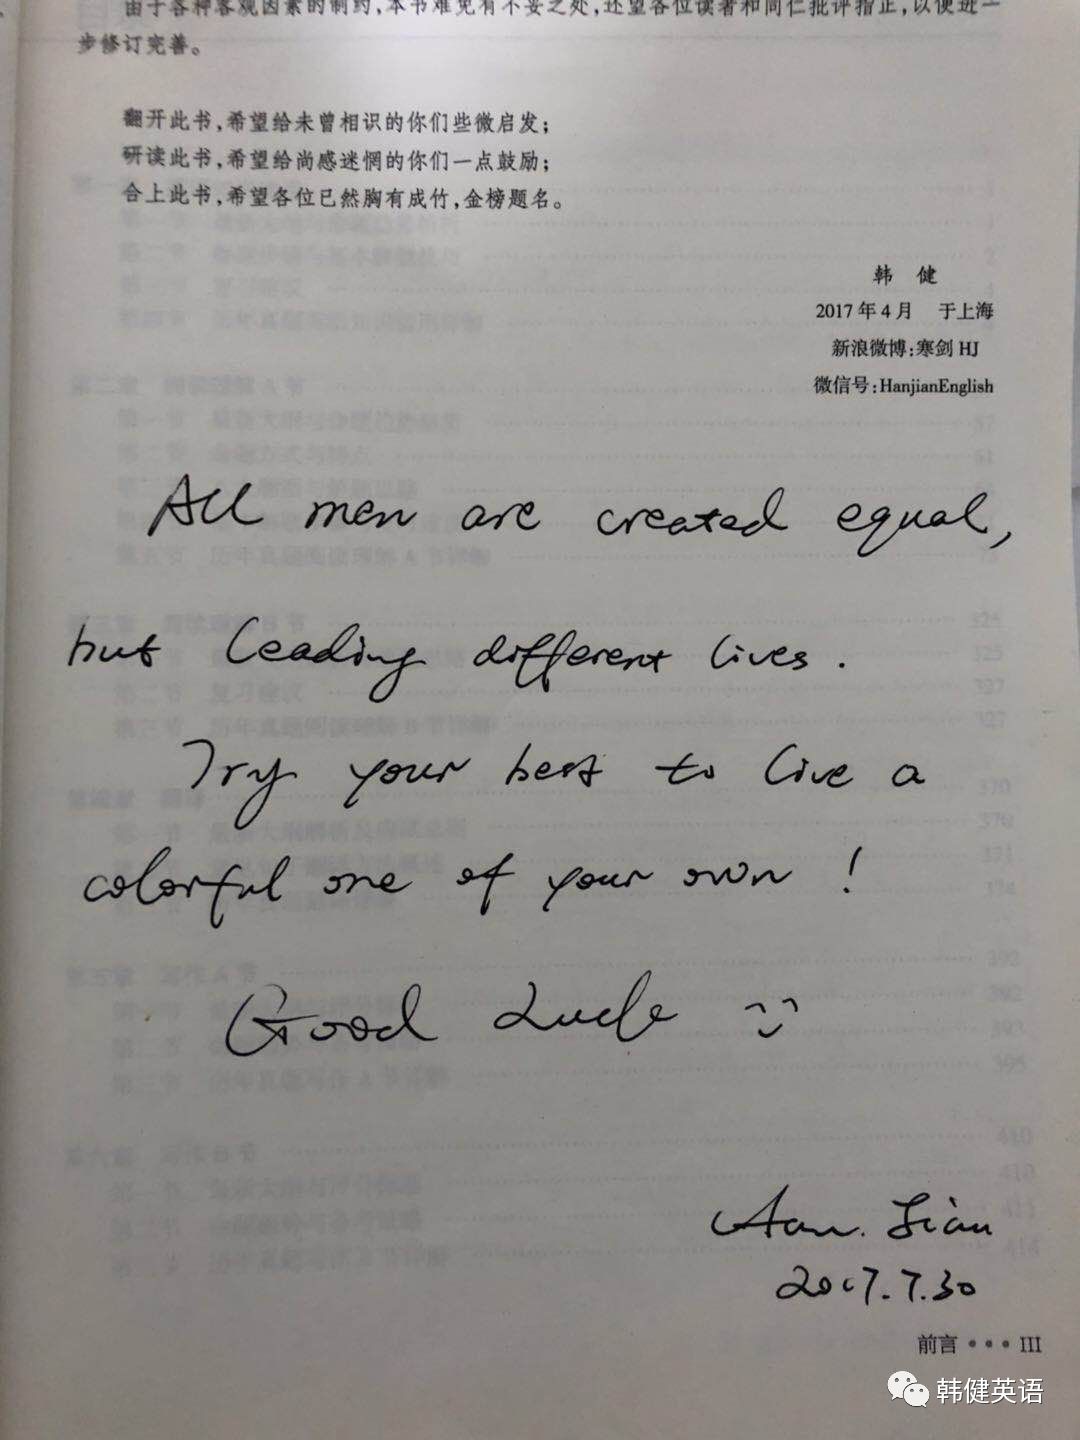 由于各种客观因素的制约,本书难免有不妥之处,还望各位读者和同仁批评指正,以便进一
步修订完善。
翻开此书,希望给未曾相识的你们些微启发;
研读此书,希望给尚感迷惘的你们一点鼓励;
合上此书,希望各位已然胸有成竹,金榜题名。
韩 健
2017年4月 于上海
新浪微博:寒剑HJ
微信号:HanjianEnglish
All men are created equal,
but leading different lives.
Try your best to live a
colorful one of your own !
Good Luck
Han. Jian
2017.7.30
前言 ••• III
韩健英语